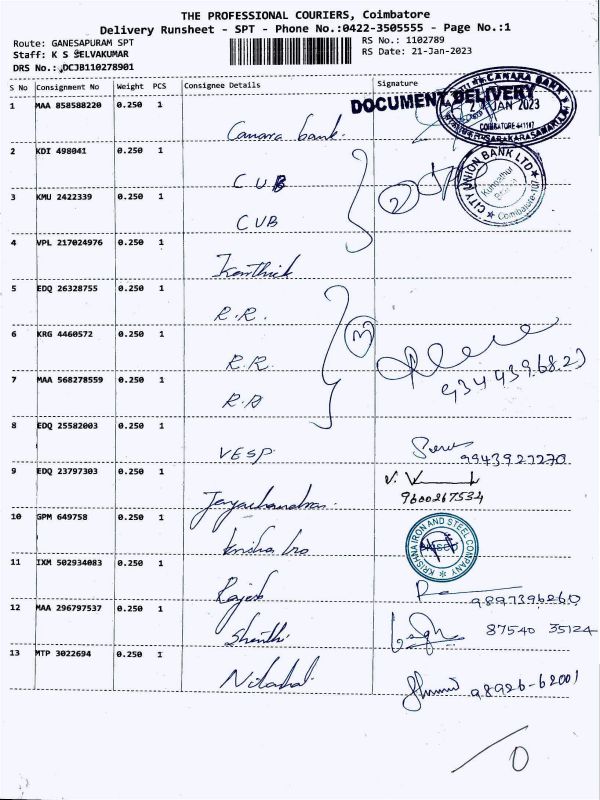 THE PROFESSIONAL COURIERS, Coimbatore
Delivery Runsheet - SPT - Phone No.:0422-3505555 - Page No.:1
Route: GANESAPURAM SPT RS No.: 1102789
Staff: K S SELVAKUMAR RS Date: 21-Jan-2023
DRS No.: DCJB110278901
S No Consignment No Weight PCS Consignee Details Signature
CANARA BANK
DOCUMENT DELIVERY
2 JAN 2023
COIMBATORE 641107
1 MAA 858588220 0.250 1
Canara bank.
2 KDI 498041 0.250 1
CUB
2
CITY UNION BANK LTD
Coimbatore
3 KMU 2422339 0.250 1
CUB
4 VPL 217024976 0.250 1
Karthick
5 EDQ 26328755 0.250 1
R.R.
6 KRG 4460572 0.250 1
R.R.
3
7 MAA 568278559 0.250 1
R.R
8 EDQ 25582003 0.250 1
VESP
9943927270
9 EDQ 23797303 0.250 1
Jayachandran.
9600267534
10 GPM 649758 0.250 1
KRISHNA IRON AND STEEL COMPANY
11 IXM 502934083 0.250 1
Rajesh
9897396260
12 MAA 296797537 0.250 1
Shanthi
87540 35124
13 MTP 3022694 0.250 1
98926-62001
0